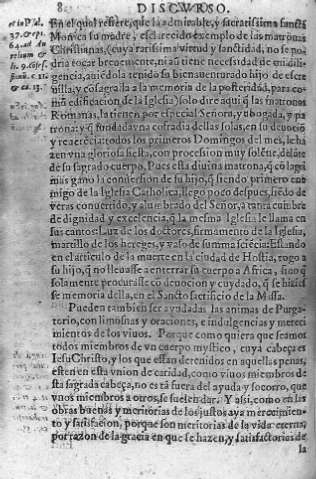 8 DISCVRSO.
et in Psal.
37. & ep.
64. ad
lib. 9. Cõfes.
c. 11.
& ca. 13.
En el qual refiere, que la admirable, y sacratissima sancta
Monica su madre, esclarecido exemplo de las matronas
Christianas, (cuya rarissima virtud y sanctidad, no se po
dria tocar breuemente, ni aũ tiene necessidad de mi dili
gencia, auiẽdola tenido su bienauenturado hijo de escre
uilla, y cõsagralla a la memoria de la posteridad, para co
mũ edificacion de la Iglesia) solo dire aqui q̃ las matronas
Romanas, la tienen por especial Señora, y abogada, y pa
trona: y q̃ fundada vna cofradia dellas solas, en su deuociõ
y reuerẽcia todos los primeros Domingos del mes, le ha
zen vna gloriosa fiesta, con procession muy solẽne, delãte
de su sagrado cuerpo. Pues esta diuina matrona, q̃ cõ lagri
mas gano la conuersion de su hijo, q̃ siendo primero ene
migo de la Iglesia Catholica, llego poco despues, siẽdo de
veras conuertido, y alumbrado del Señor, a tanta cumbre
de dignidad y excelencia, q̃ la mesma Iglesia le llama en
sus cantos: Luz de los doctores, firmamento de la Iglesia,
martillo de los hereges, y vaso de summa sciẽcia: Estando
en el articulo de la muerte en la ciudad de Hostia, rogo a
su hijo, q̃ no lleuasse a enterrar su cuerpo a Africa, sino q̃
solamente procurasse cõ deuocion y cuydado, q̃ se hiziesse
se memoria della, en el Sancto sacrificio de la Missa.
Pueden tambien ser ayudadas las animas de Purga-
torio, con limosnas y oraciones, e indulgencias y mereci
mientos de los viuos. Porque como quiera que seamos
todos miembros de vn cuerpo mystico, cuya cabeça es
Iesu Christo, y los que estan detenidos en aquellas penas,
esten en esta vnion de caridad, como viuos miembros de
sta sagrada cabeça, no esta fuera del ayuda y socorro, que
vnos miembros a otros, se suelen dar. Y assi, como en las
obras buenas y meritorias de los justos aya merecimien-
to y satisfacion, porque son meritorias de la vida eterna,
por razon de la gracia en que se hazen, y satisfactorias de
la